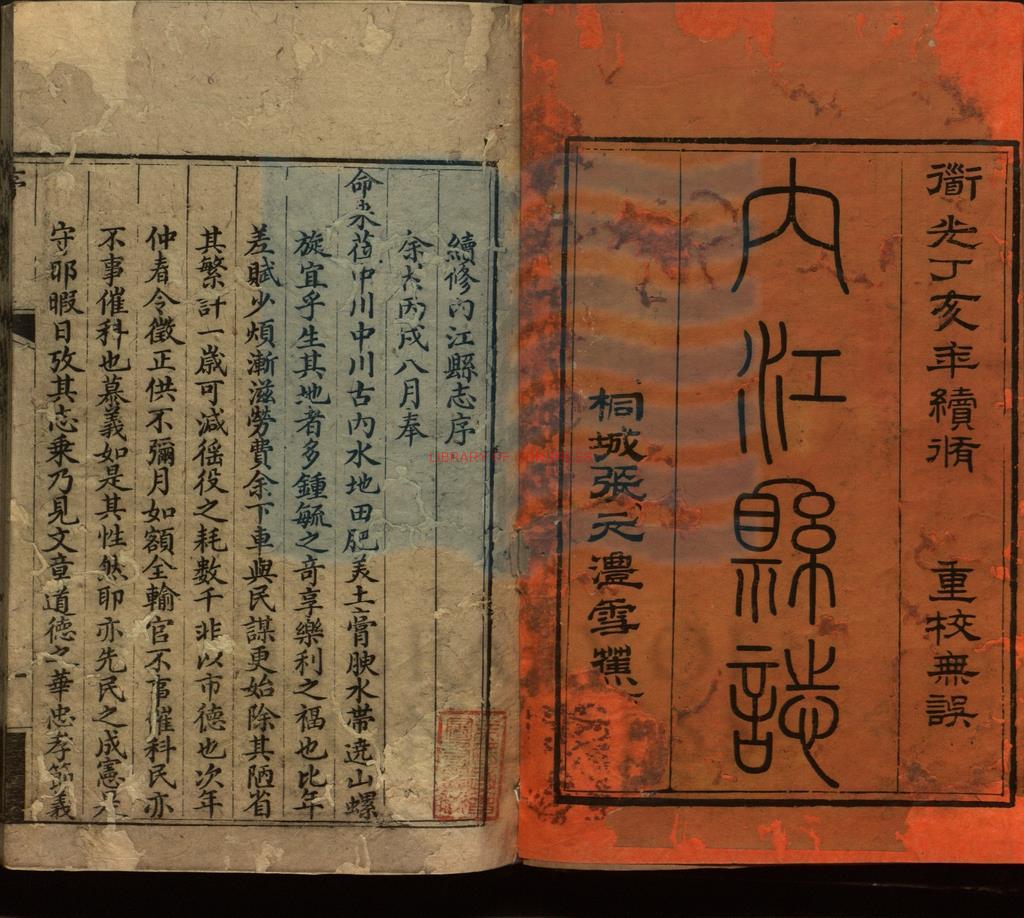 衟光丁亥年續脩 重校無誤
內江縣誌
桐城張元澧雪蕉
續修內江縣志序
余於丙戌八月奉
命來蒞中川中川古內水地田肥美土膏腴水帶遶山螺
旋宜乎生其地者多鍾毓之奇享樂利之福也比年
差賦少煩漸滋勞費余下車與民謀更始除其陋省
其繁計一歲可減徭役之耗數千非以市德也次年
仲春令徵正供不彌月如額全輸官不事催科民亦
不事催科也慕義如是其性然耶亦先民之成憲是
守耶暇日攷其志乘乃見文章道德之華忠孝節義
LIBRARY OF CONGRESS